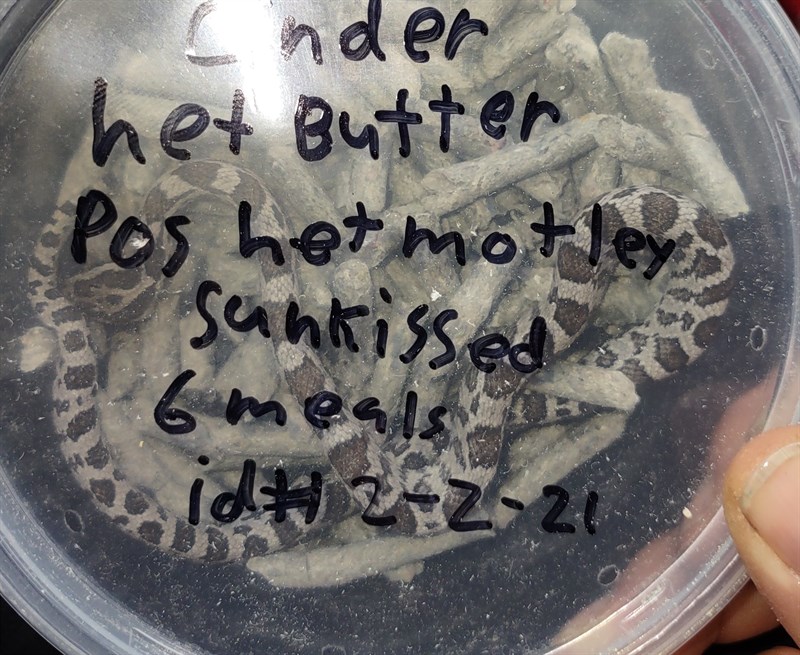 Cinder
het Butter
Pos het motley
sunkissed
6 meals
id# 2-2-21